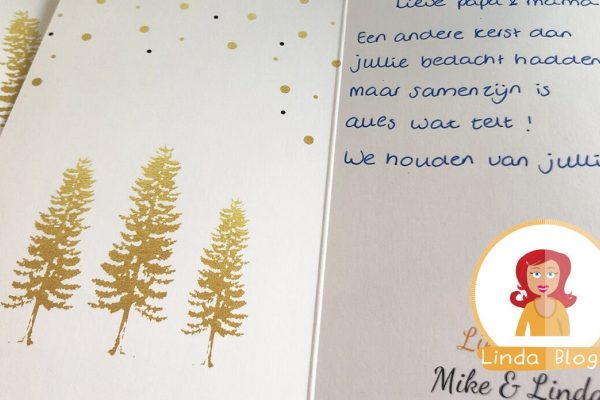 Lieve papa & mama
Een andere kerst dan
jullie bedacht hadden
maar samenzijn is
alles wat telt!
We houden van jullie
Linda Blog
Mike & Linda